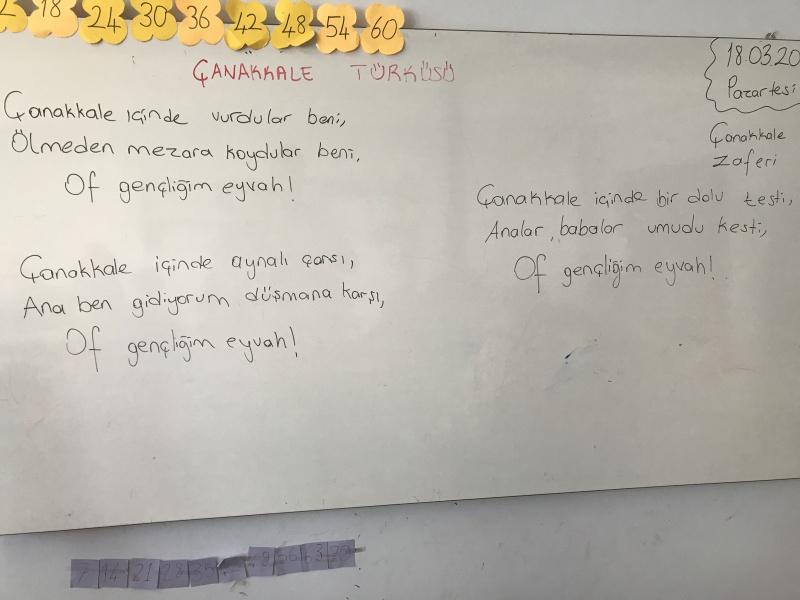 18 24 30 36 42 48 54 60
ÇANAKKALE TÜRKÜSÜ
18.03.20
Pazartesi
Çanakkale
zaferi
Çanakkale içinde vurdular beni,
Ölmeden mezara koydular beni,
Of gençliğim eyvah!
Çanakkale içinde aynalı çarşı,
Ana ben gidiyorum düşmana karşı,
Of gençliğim eyvah!
Çanakkale içinde bir dolu testi,
Analar, babalar umudu kesti,
Of gençliğim eyvah!
7 14 21 28 35 56 63 70